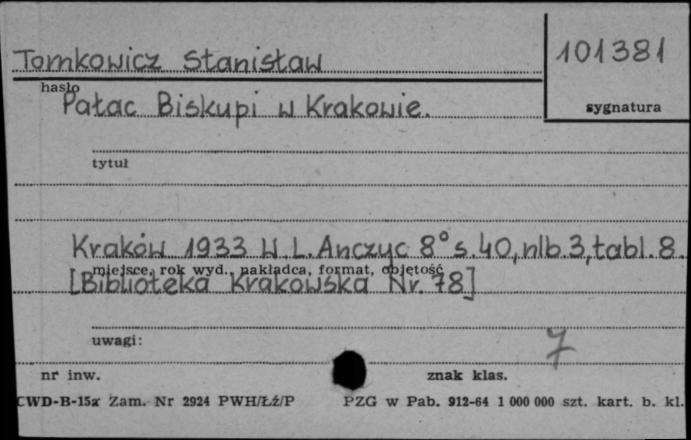 Tomkowicz Stanisław
101381
hasło
sygnatura
Pałac Biskupi w Krakowie.
tytuł
Kraków 1933 W.L. Anczyc 8° s. 40, nlb. 3, tabl. 8.
miejsce, rok wyd., nakładca, format, objętość
[Biblioteka Krakowska Nr. 78]
uwagi:
7
nr inw.
znak klas.
CWD-B-15a Zam. Nr 2924 PWH/Łź/P PZG w Pab. 912-64 1 000 000 szt. kart. b. kl.